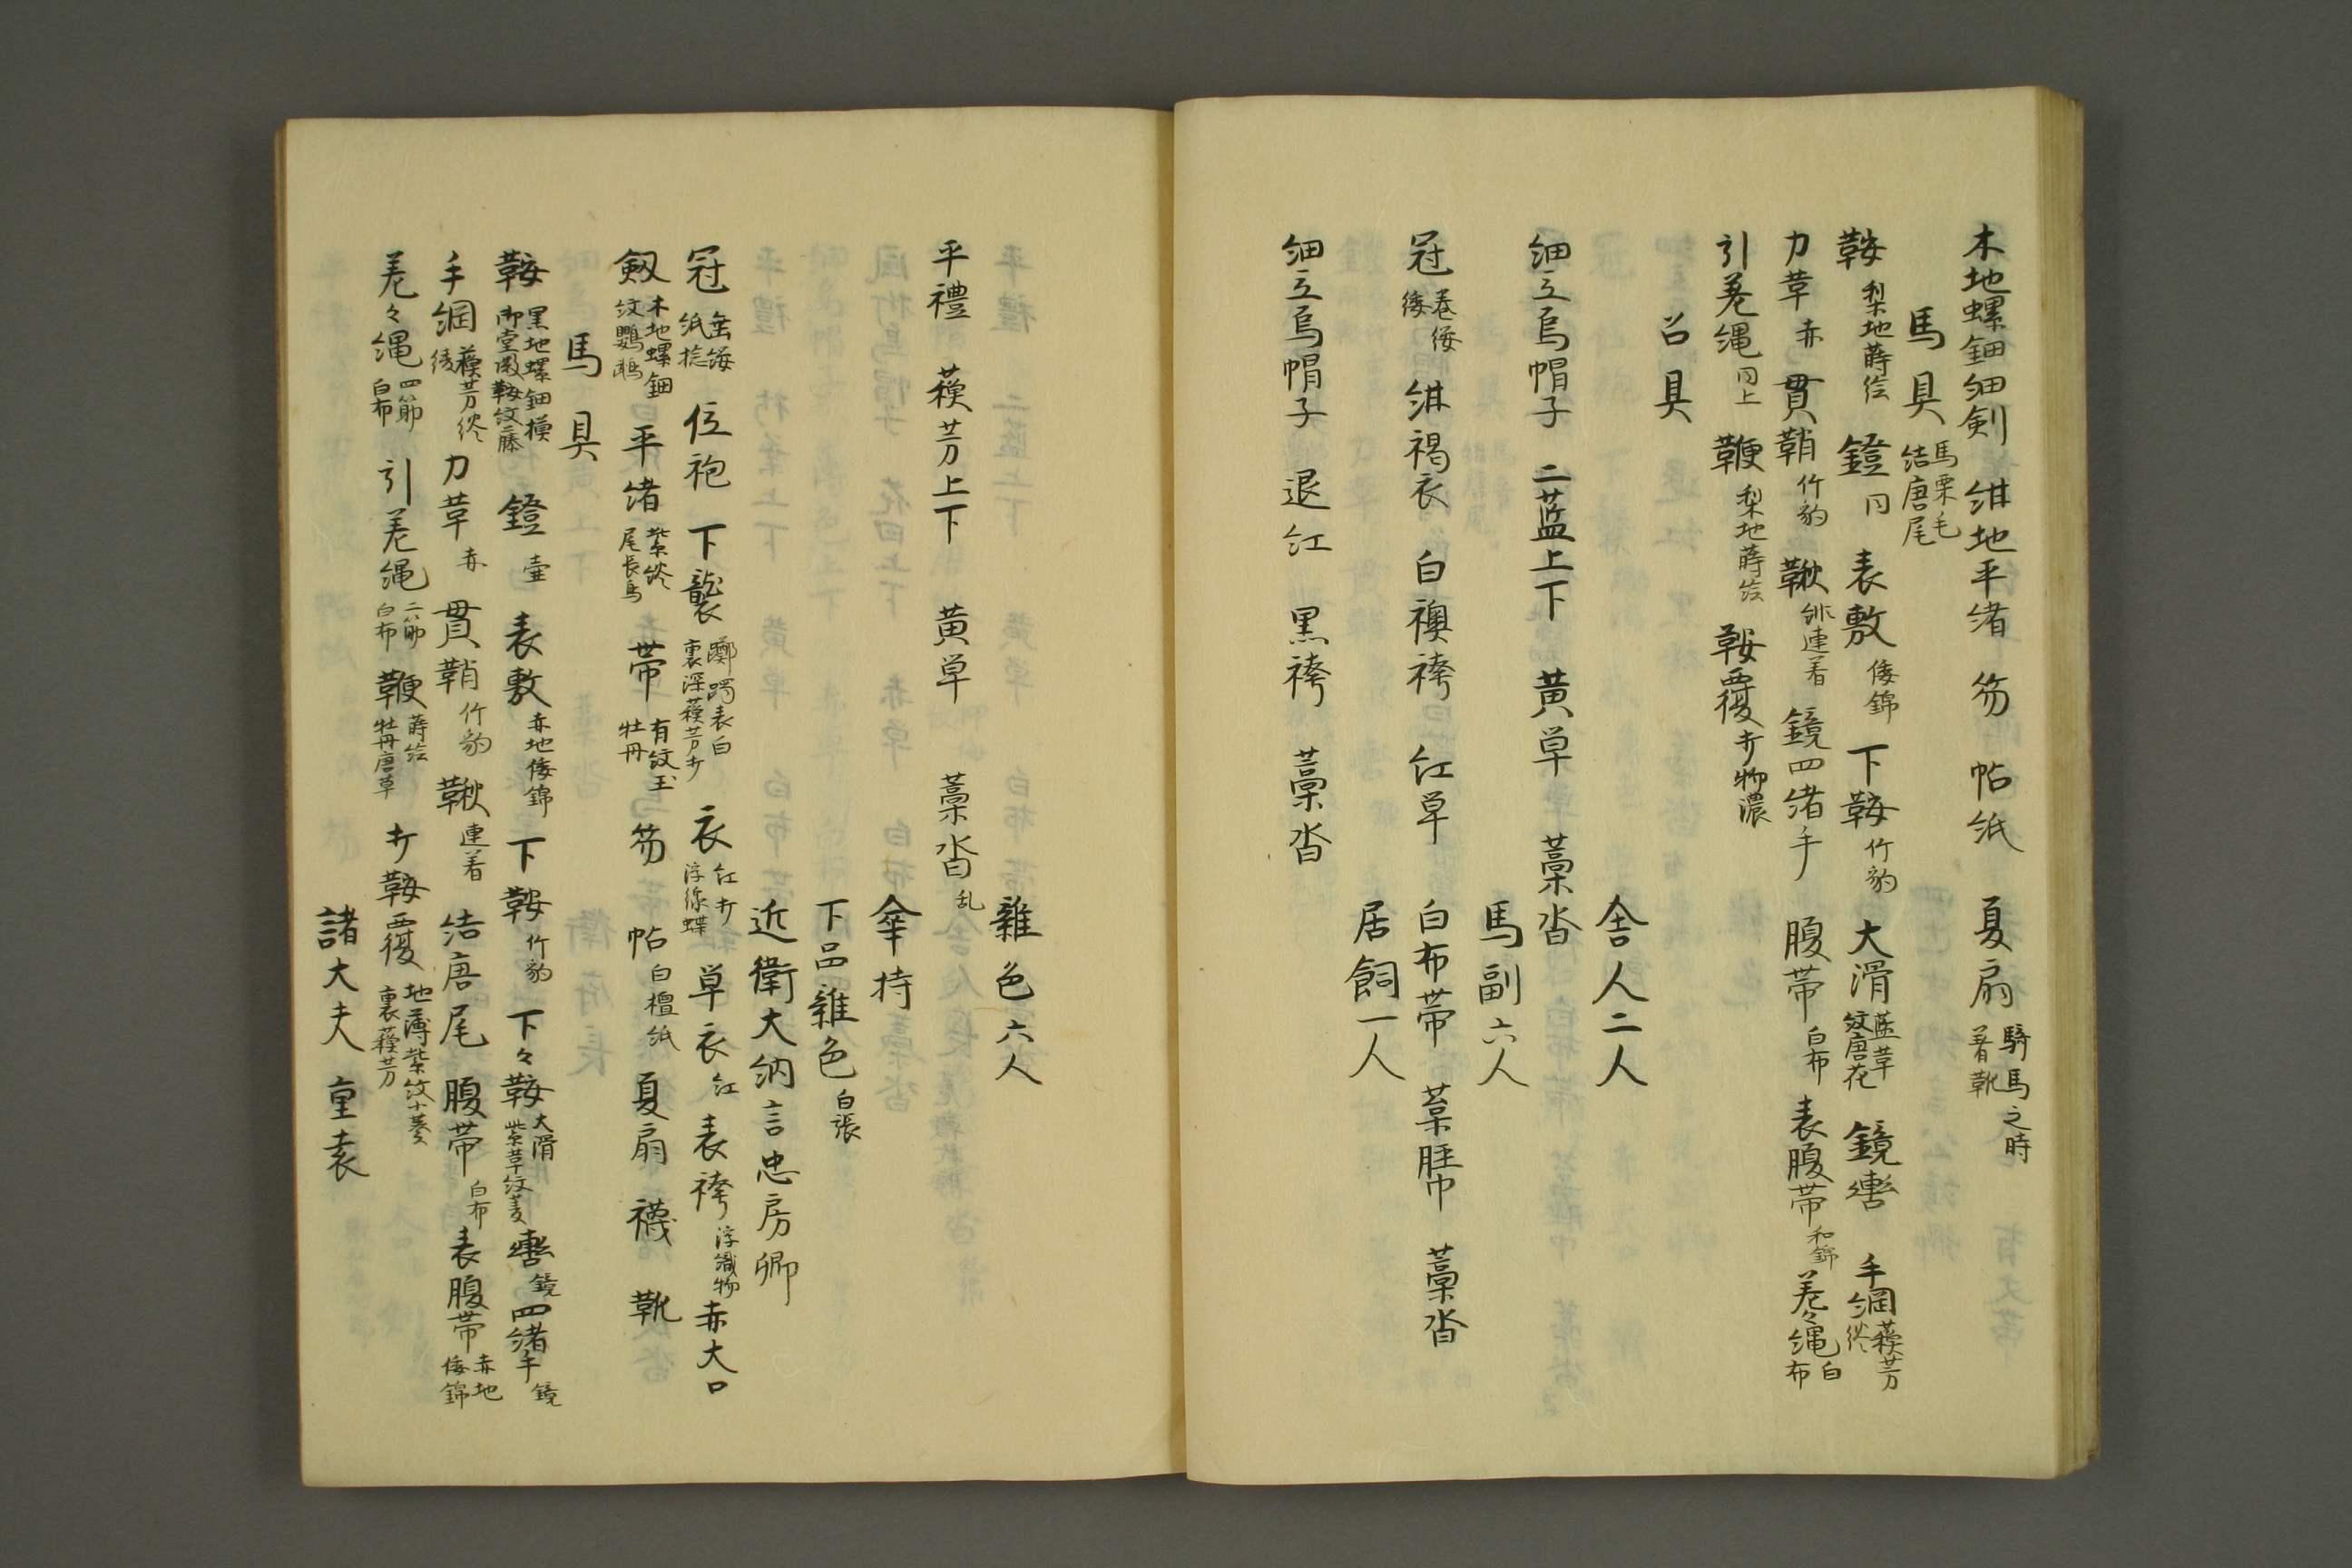 木地螺鈿細剣 紺地平緒 笏 帖紙 夏扇 騎馬之時着靴
馬具 馬栗毛結唐尾
鞍 梨地蒔絵 鐙 同 表敷 倭錦 下鞍 竹豹 大滑 藍革紋唐花 鏡轡 手綱 蘇芳
力革 赤 貫鞘 竹豹 鞦 連着 鏡四緒手 腹帯 白布 表腹帯 和錦 差々縄 白布
引差縄 同上 鞭 梨地蒔絵 鞍覆 打物濃
召具
舎人二人
細立烏帽子 二藍上下 黄単 藁沓
馬副六人
冠 巻緌 紺褐衣 白襖袴 紅単 白布帯 葈脛巾 藁沓
居飼一人
細立烏帽子 退紅 黒袴 藁沓
雑色六人
平禮 蘇芳上下 黄単 藁沓 乱
傘持
下品雑色 白張
近衛大納言忠房卿
冠 紙捻 位袍 下襲 躑躅表白裏深蘇芳打 衣 紅打浮線蝶 単衣 紅 表袴 浮織物 赤大口
剱 木地螺鈿紋鸚鵡 平緒 紫 尾長鳥 帯 有紋玉牡丹 笏 帖 白檀紙 夏扇 襪 靴
馬具
鞍 黒地螺鈿模御堂関鞍紋藤 鐙 壷 表敷 赤地倭錦 下鞍 竹豹 下々鞍 大滑紫革紋菱 轡 鏡 四緒手 鏡
手綱 蘇芳 綾 力革 赤 貫鞘 竹豹 鞦 連着 結唐尾 腹帯 白布 表腹帯 赤地倭錦
差々縄 四筋白布 引差縄 二筋白布 鞭 蒔絵牡丹唐草 打鞍覆 地薄紫紋小葵裏蘇芳
諸大夫 重表